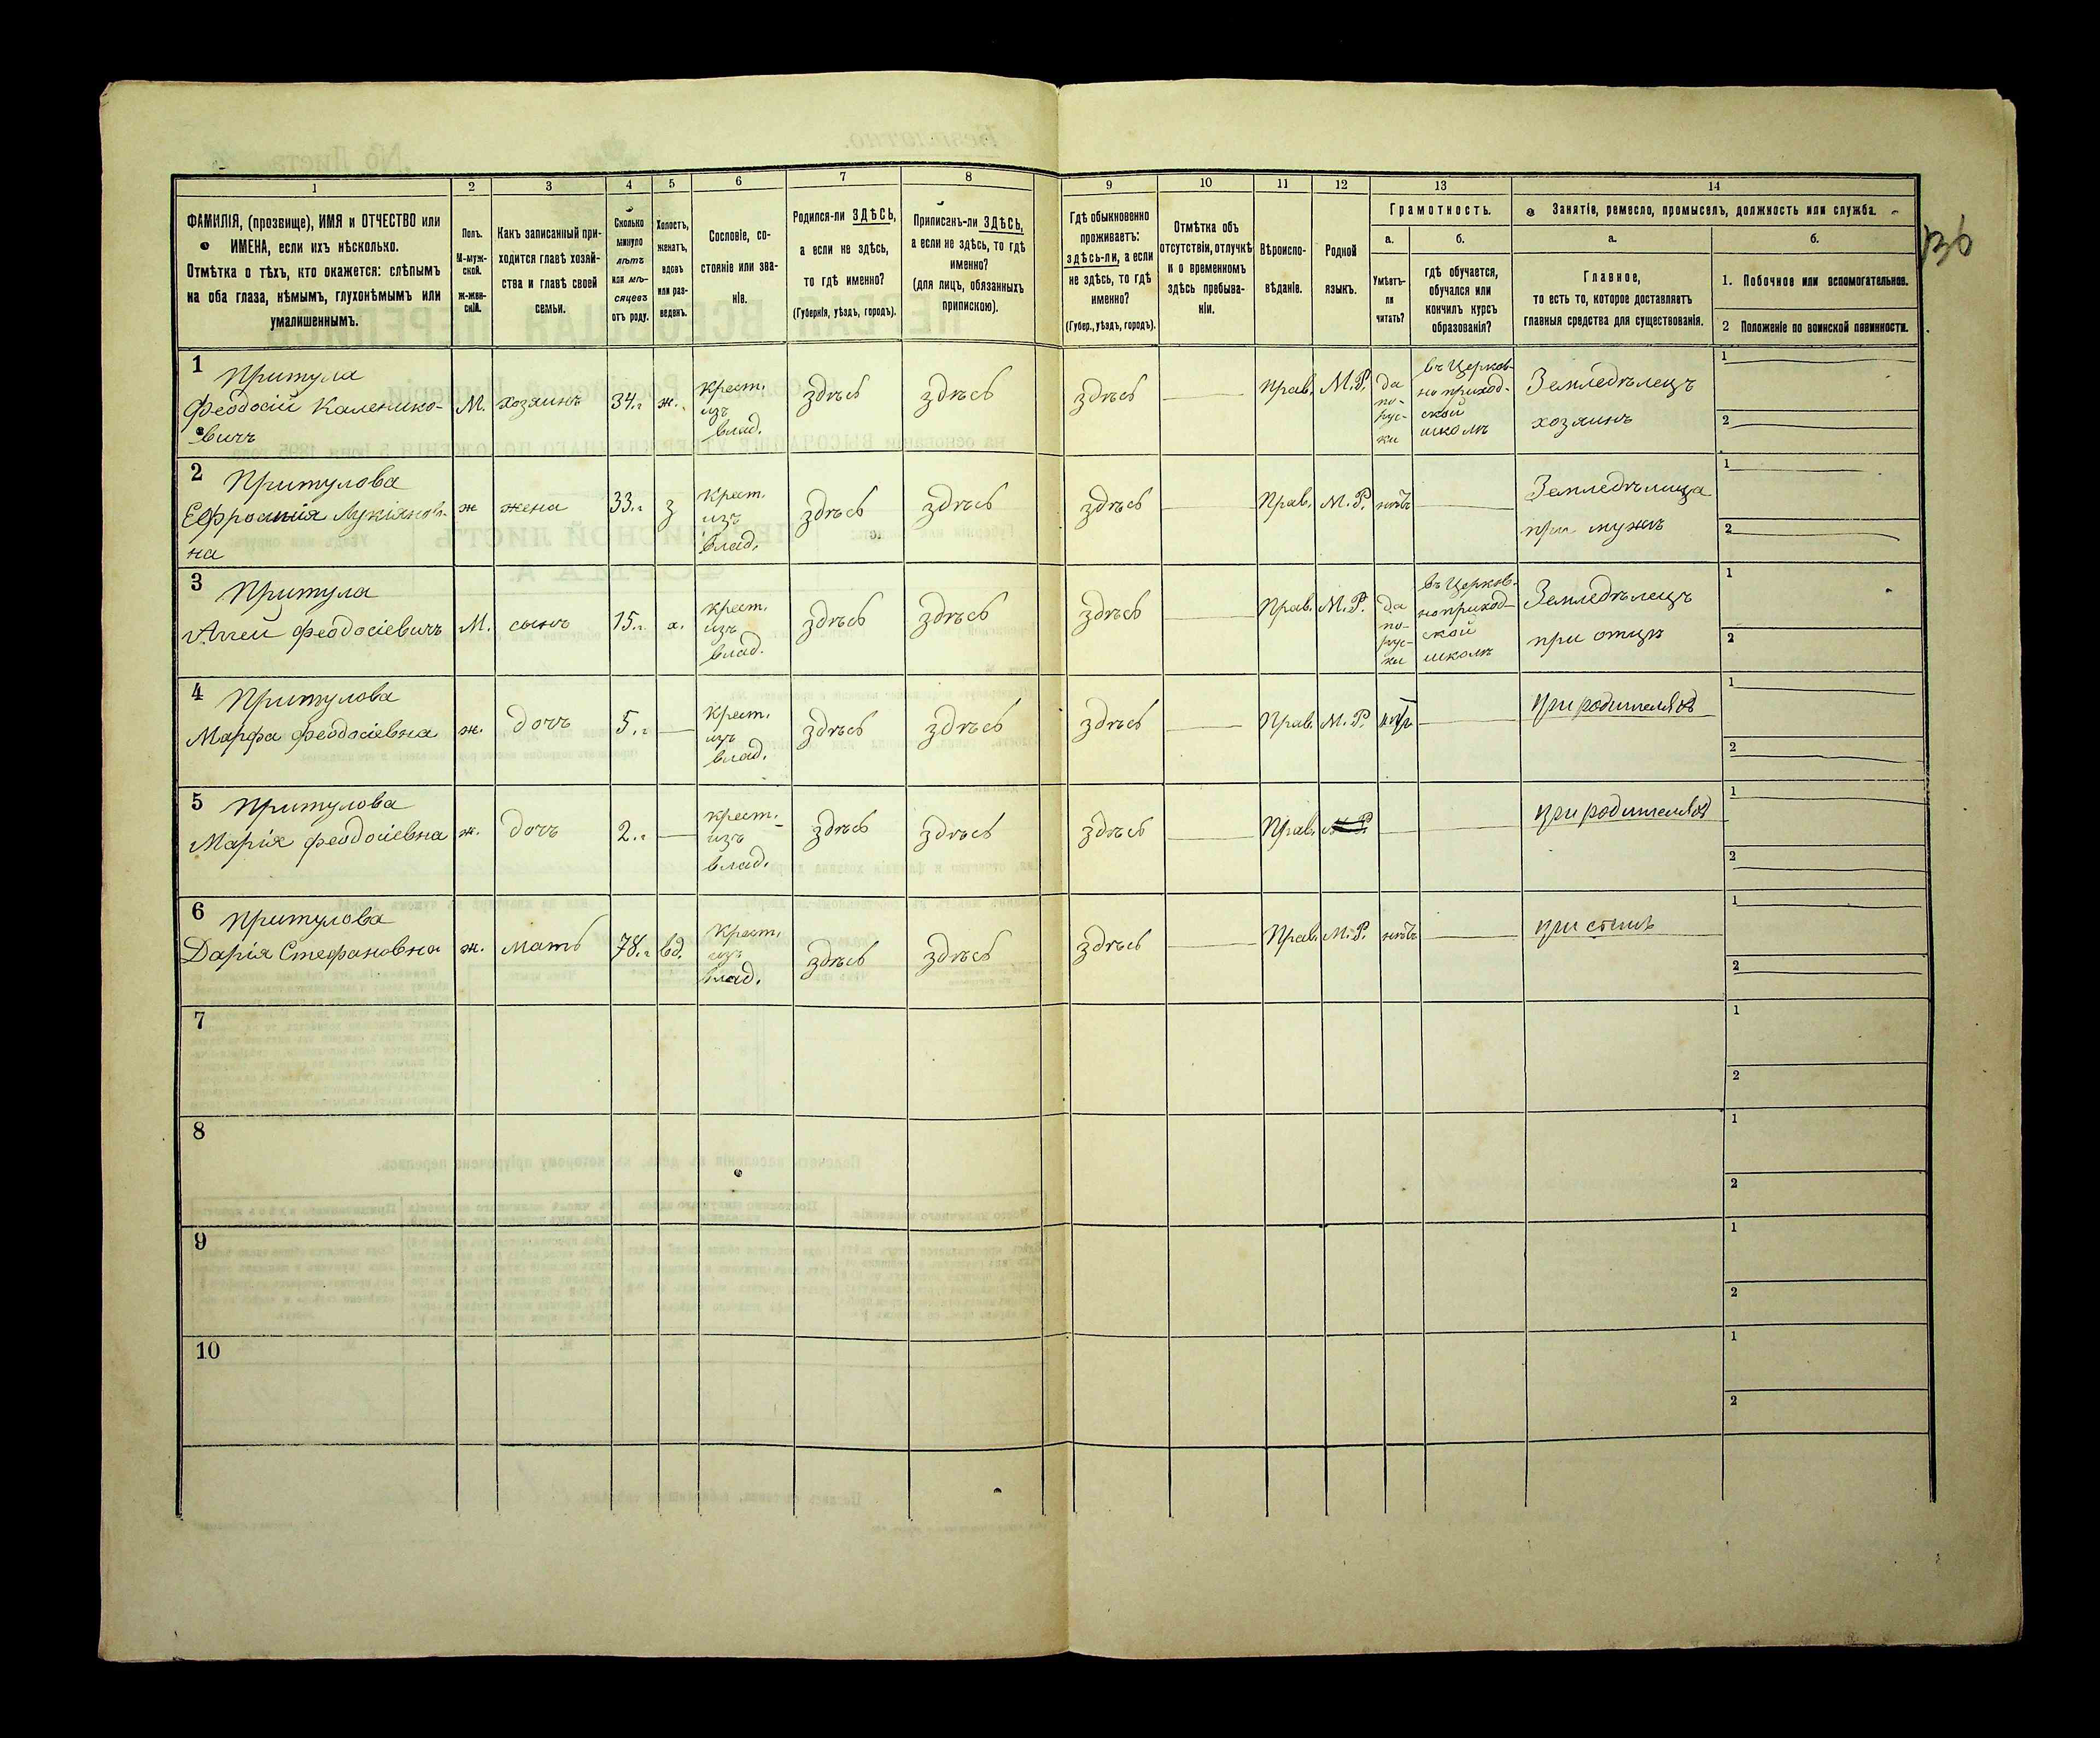 1 2 3 4 5 6 7 8 9 10 11 12 13 14
ФАМИЛІЯ, (прозвище), ИМЯ и ОТЧЕСТВО или
ИМЕНА, если ихъ нѣсколько.
Отмѣтка о тѣхъ, кто окажется: слѣпымъ
на оба глаза, нѣмымъ, глухонѣмымъ или
умалишеннымъ.
Полъ.
М-муж-
ской.
ж-жен-
скій.
Какъ записанный при-
ходится главѣ хозяй-
ства и главѣ своей
семьи.
Сколько
минуло
лѣтъ
или мѣ-
сяцевъ
отъ роду.
Холостъ,
женатъ,
вдовъ
или раз-
веденъ.
Сословіе, со-
стояніе или зва-
ніе.
Родился-ли ЗДѢСЬ,
а если не здѣсь,
то гдѣ именно?
(Губернія, уѣздъ, городъ).
Приписанъ-ли ЗДѢСЬ,
а если не здѣсь, то гдѣ
именно?
(для лицъ, обязанныхъ
припискою).
Гдѣ обыкновенно
проживаетъ:
здѣсь-ли, а если
не здѣсь, то гдѣ
именно?
(Губер., уѣздъ, городъ).
Отмѣтка объ
отсутствіи, отлучкѣ
и о временномъ
здѣсь пребыва-
ніи.
Вѣроиспо-
вѣданіе.
Родной
языкъ.
Грамотность.
а.
Умѣетъ-
ли
читать?
б.
гдѣ обучается,
обучался или
кончилъ курсъ
образованія?
Занятіе, ремесло, промыселъ, должность или служба.
а.
Главное,
то есть то, которое доставляетъ
главныя средства для существованія.
б.
1. Побочное или вспомогательное.
2 Положеніе по воинской повинности.
136
1 Притула
Феодосій Каленико-
вичъ
М.
хозяинъ
34.
ж.
крест.
изъ
влад.
здѣсь
здѣсь
здѣсь
Прав.
М.Р.
да
по-
рус-
ки
въ Церков-
но приход-
ской
школѣ
Земледѣлецъ
хозяинъ
1
2
2 Притулова
Ефросинія Лукіянов-
на
ж
жена
33.
з
крест.
изъ
влад.
здѣсь
здѣсь
здѣсь
Прав.
М.Р.
нѣтъ
Земледѣлица
при мужѣ
1
2
3 Притула
Феодосіевичъ
М.
сынъ
15.
х.
крест.
изъ
влад.
здѣсь
здѣсь
здѣсь
Прав.
М.Р.
да
по-
рус-
ки
въ Церков-
но приход-
ской
школѣ
Земледѣлецъ
при отцѣ
1
2
4 Притулова
Марфа Феодосіевна
ж.
дочь
5.
крест.
изъ
влад.
здѣсь
здѣсь
здѣсь
Прав.
М.Р.
нѣтъ
при родителяхъ
1
2
5 Притулова
Марія Феодосіевна
ж.
дочь
2.
крест.
изъ
влад.
здѣсь
здѣсь
здѣсь
Прав.
М.Р.
при родителяхъ
1
2
6 Притулова
Дарія Стефановна
ж.
мать
78.
вд.
Крест.
изъ
влад.
здѣсь
здѣсь
здѣсь
Прав.
М.Р.
нѣтъ
при сынѣ
1
2
7
1
2
8
1
2
9
1
2
10
1
2